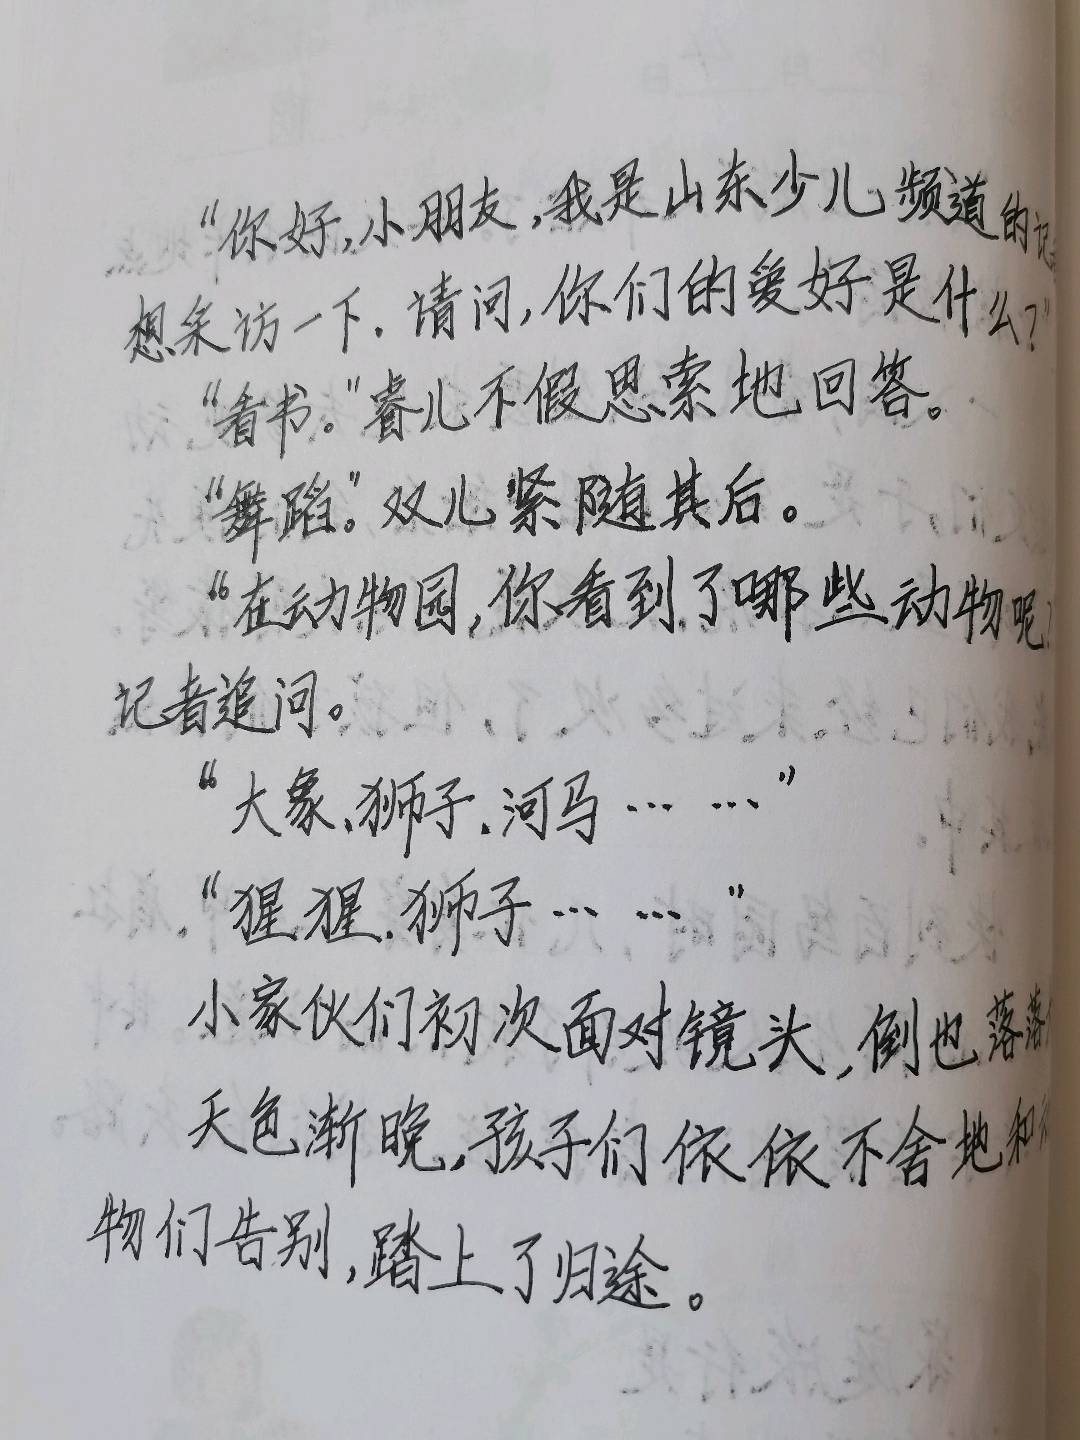 “你好,小朋友,我是山东少儿频道的记
想采访一下.请问,你们的爱好是什么?”
“看书。”睿儿不假思索地回答。
“舞蹈。”双儿紧随其后。
“在动物园,你看到了哪些动物呢?
记者追问。
“大象、狮子、河马……”
“猩猩、狮子……”
小家伙们初次面对镜头,倒也落落
天色渐晚,孩子们依依不舍地和
物们告别,踏上了归途。